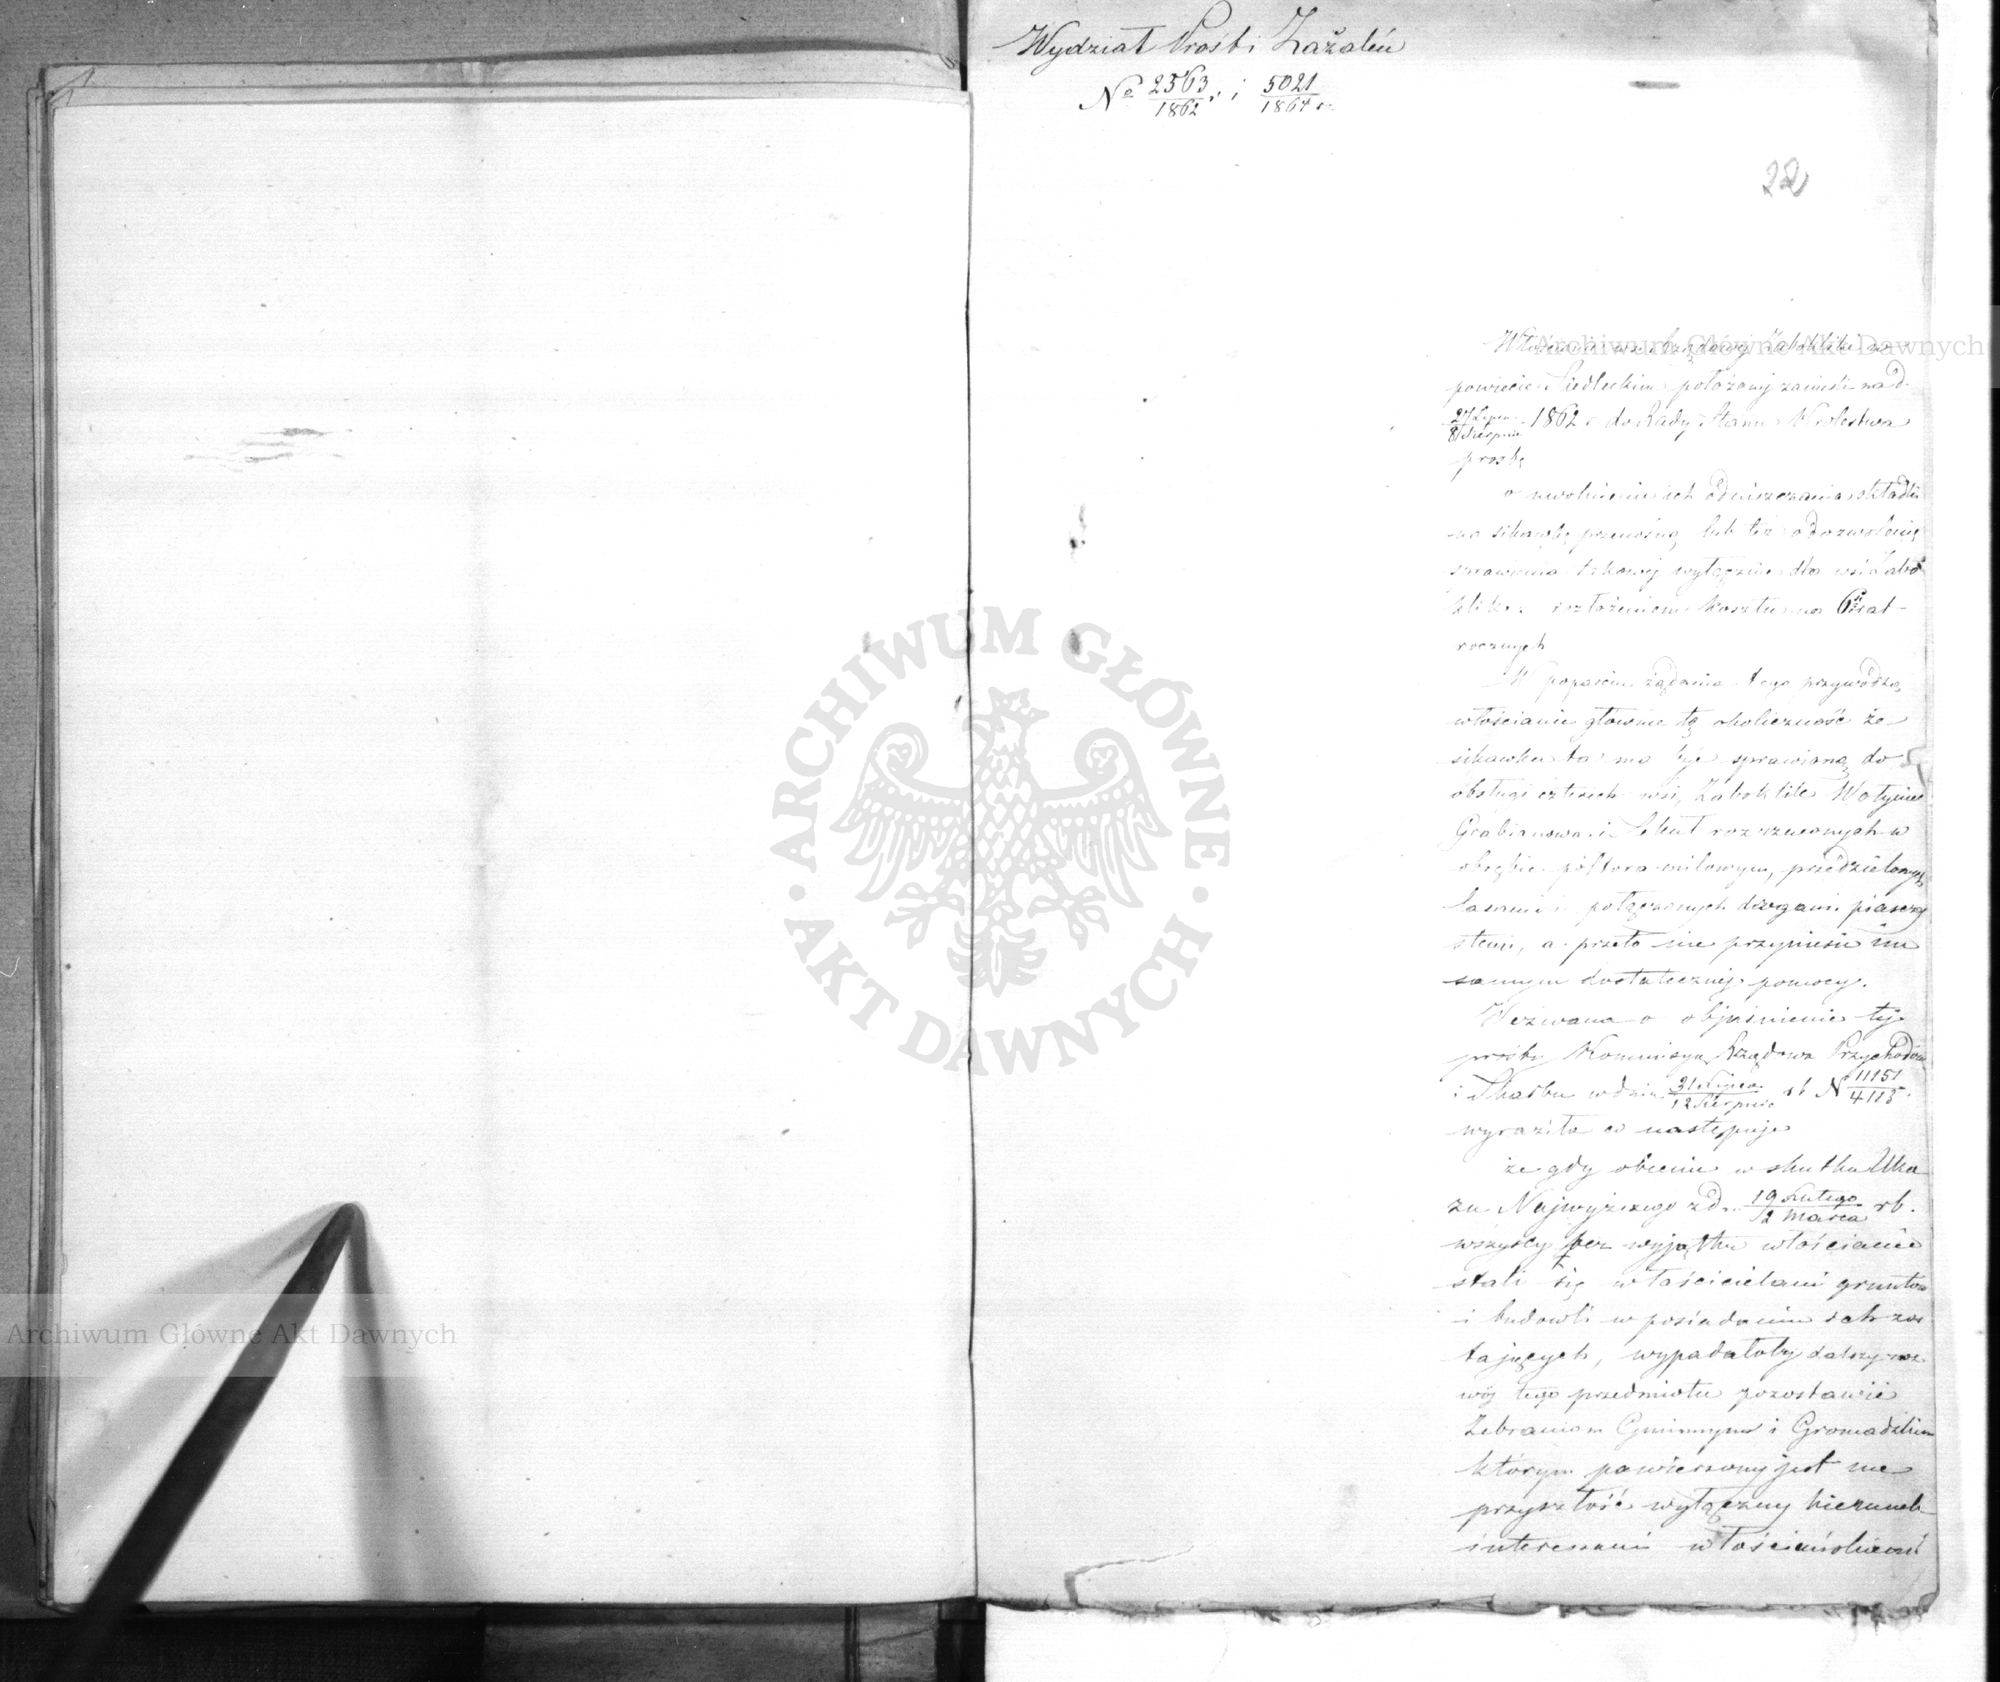 Wydział Prośb i Zażaleń
No 2563/1862 r. i 5021/1864 r.
22
Włościanie wsi Rządowej Żabokliki w
powiecie Siedleckim położonej zanieśli nad
27 Lipca/8 Sierpnia 1862 r do Rady Stanu Królestwa
prośbę
o uwolnienie ich od uiszczania składki
na sikawkę przenośną lub też o dozwolenie
sprawienia takowej wyłącznie dla wsi Żabo
kliki z rozłożeniem kosztu na 6 rat
rocznych
W poparciu żądania tego przywodzą
włościanie głównie tę okoliczność że
sikawka ta ma być sprawioną do
obsługi czterech wsi, Żabokliki Wołyńce
Grabianowa i Sekuł rozrzuconych w
obrębie półtora milowym, przedzielonych
lasami i połączonych drogami piaszczy
stemi, a przeto nie przyniesie im
samym dostatecznej pomocy.
Wezwana o objaśnienie tej
prośby Kommissya Rządowa Przychodów
i Skarbu w dniu 31 Lipca/12 Sierpnia rb N 11151/4115
wyraziła co następuje
że gdy obecnie w skutku Uka
zu Najwyższego z d. 19 Lutego/2 Marca rb.
wszyscy bez wyjątku włościanie
stali się właścicielami gruntów
i budowli w posiadaniu ich zos
tających, wypadałoby dalszy roz
wój tego przedmiotu pozostawić
Zebraniom Gminnym i Gromadzkim
którym powierzony jest na
przyszłość wyłączny kierunek
interessami włościańskiemi
Archiwum Główne Akt Dawnych
Archiwum Główne Akt Dawnych
ARCHIWUM GŁÓWNE · AKT DAWNYCH ·